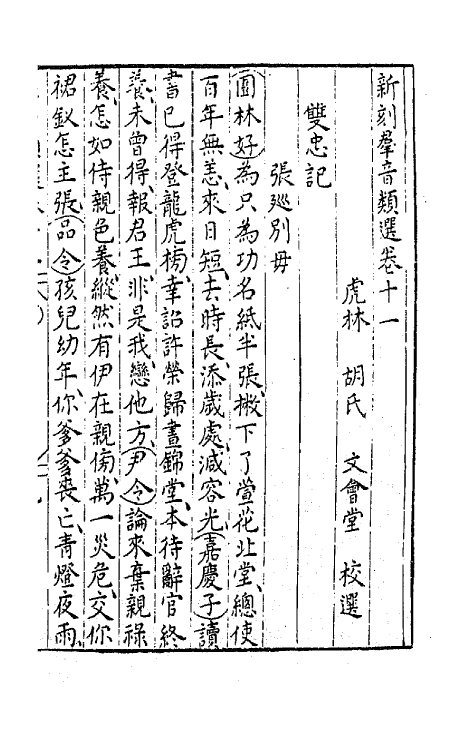 新刻羣音類選卷十一
虎林 胡氏 文會堂 校選
雙忠記
張巡別母
園林好為只為功名紙半張撇下了萱花北堂總使
百年無恙來日短去時長添歲處減容光嘉慶子讀
書已得登龍虎榜幸詔許榮歸晝錦堂本待辭官終
養未曾得報君王非是我戀他方尹令論來棄親祿
養怎如侍親色養縱然有伊在親傍萬一災危交你
裙釵怎王張品令孩兒幼年你爹爹喪亡青燈夜雨